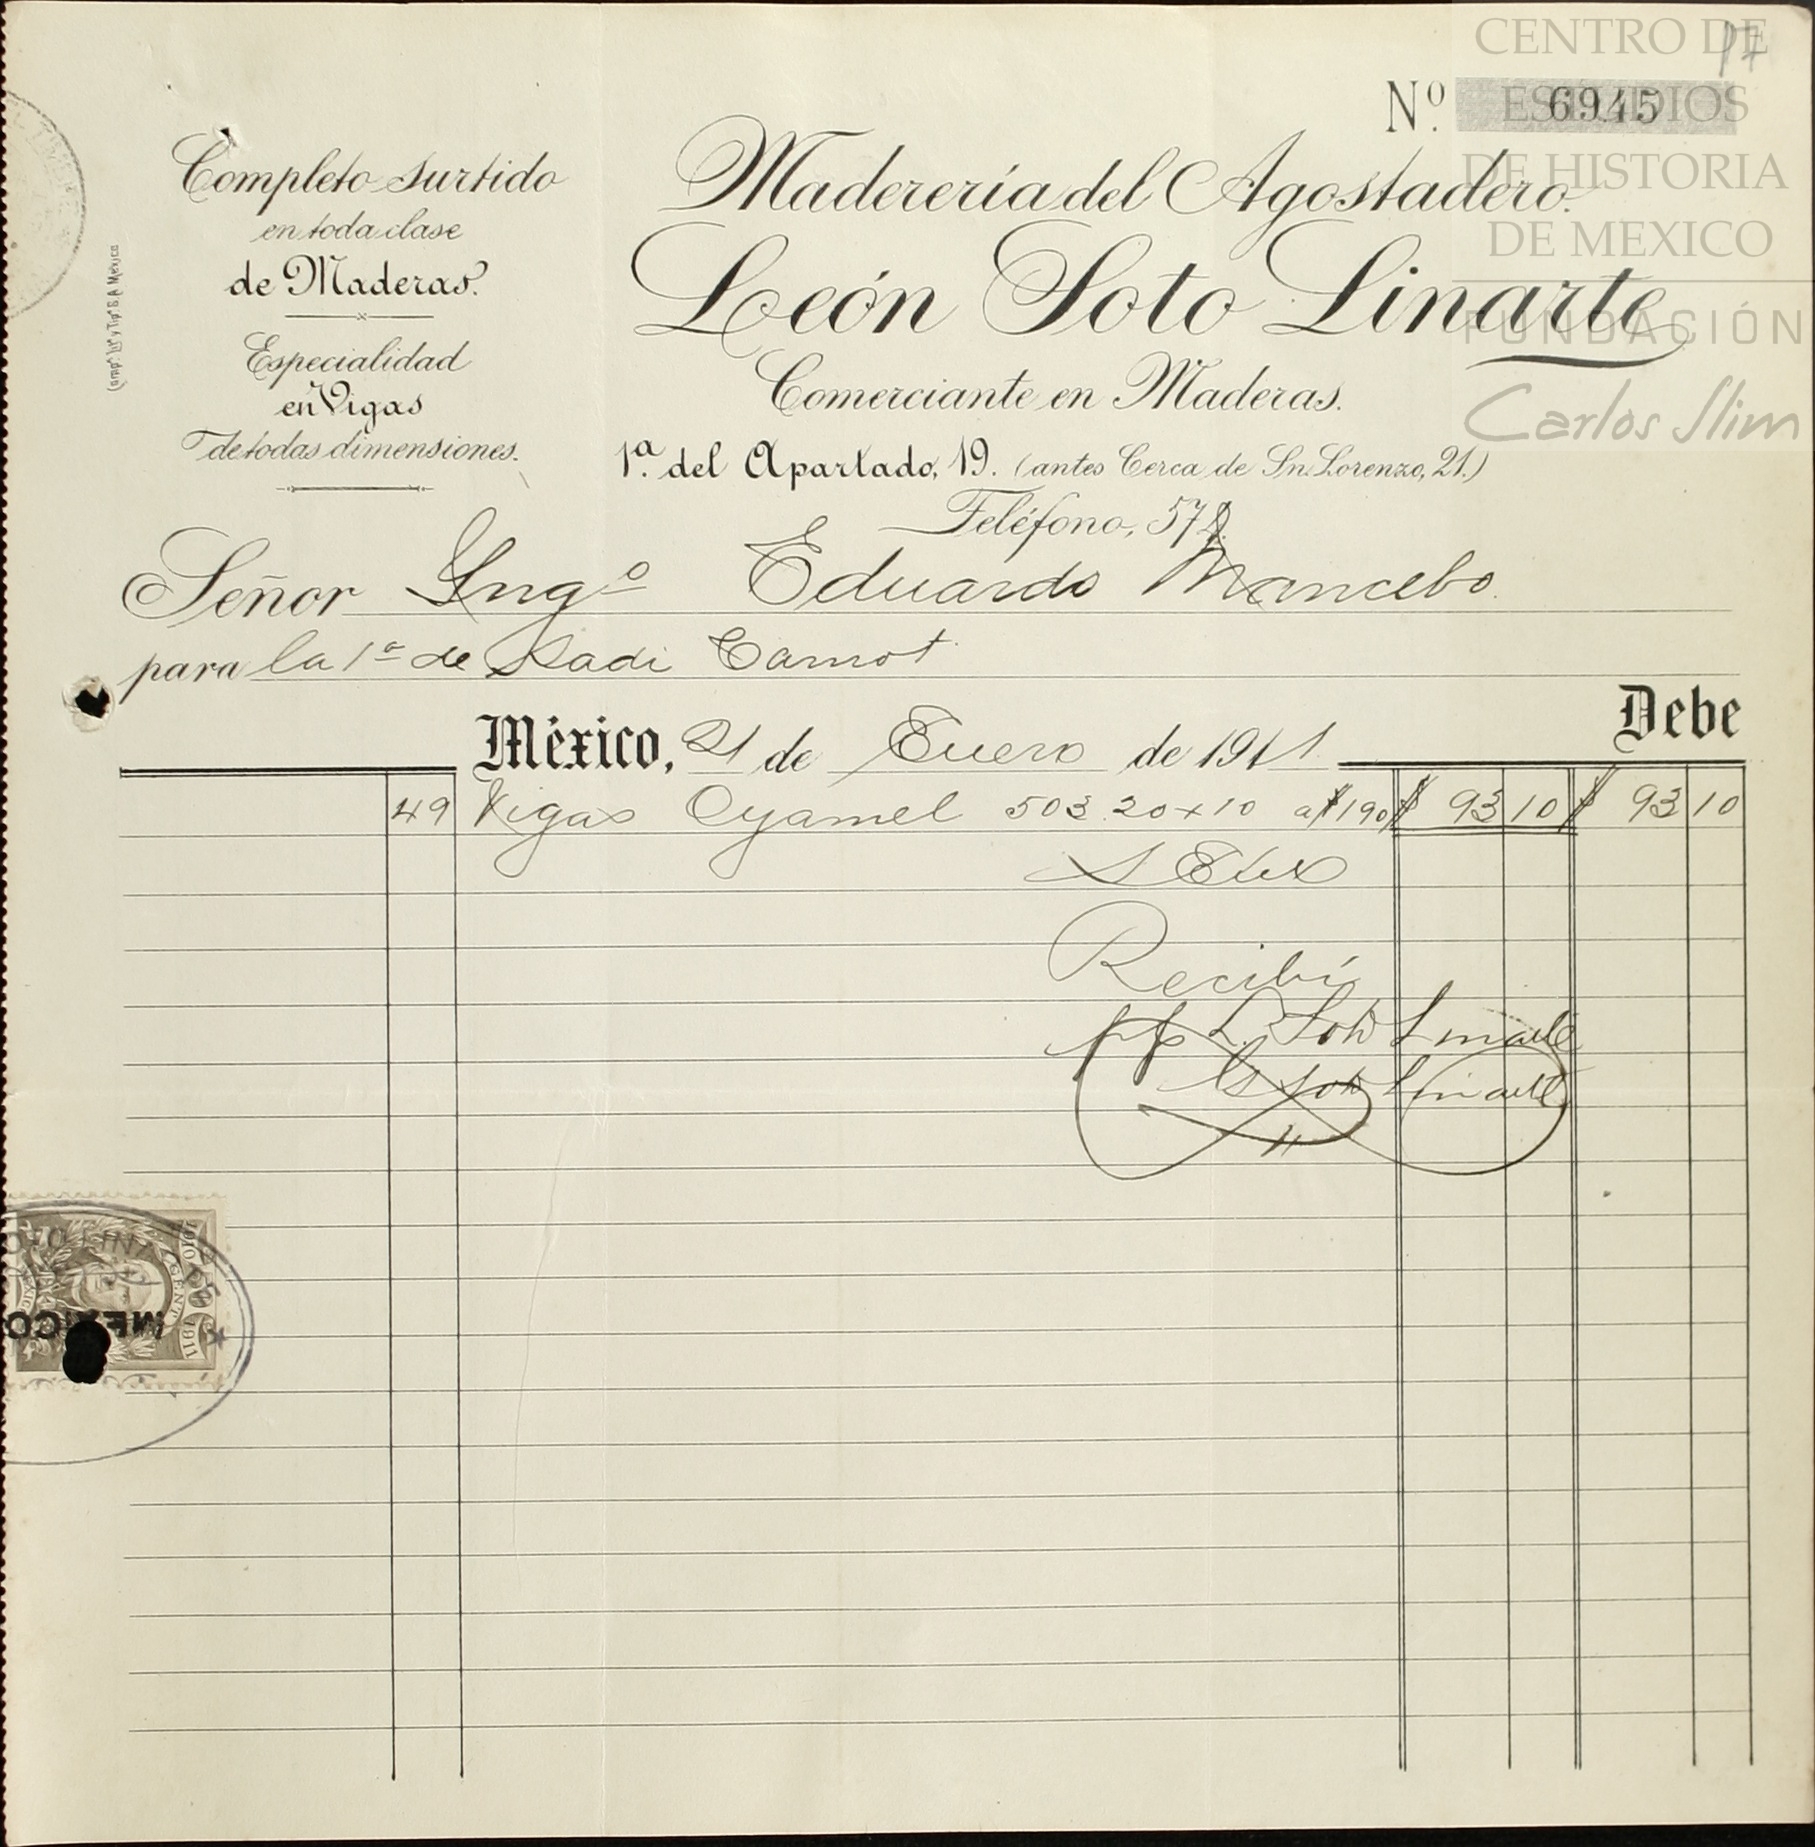 CENTRO DE
ESTUDIOS
DE HISTORIA
DE MEXICO
FUNDACIÓN
Carlos Slim
17
Nº. 6945
Completo surtido
en toda clase
de Maderas.
Especialidad
en Vigas
de todas dimensiones.
Maderería del Agostadero.
León Soto Linarte
Comerciante en Maderas.
1ª. del Apartado, 19. (antes Cerca de Sn. Lorenzo, 21.)
Teléfono, 572
Señor Ingº Eduardo Mancebo.
para la 1ª de Sadi Carnot
Debe
México, 21 de Enero de 1911
49 Vigas Oyamel 503 20 x 10 a $190 $ 93 10 $ 93 10
Recibí
pp L. Soto Linarte
Soto Linarte
1910 1911
CENT
MEXICO